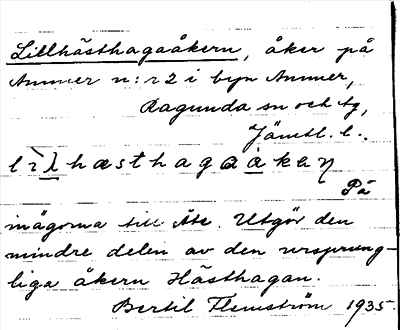 Lillhästhagaåkern, åker på
Ammer n:r 2 i byn Ammer,
Ragunda sn och tg,
Jämtl. l.
lìlhæsthagaåkaṇ
På
inägorna till Åte. Utgör den
mindre delen av den ursprung-
liga åkern Hästhagan.
Bertil Flemström 1935.